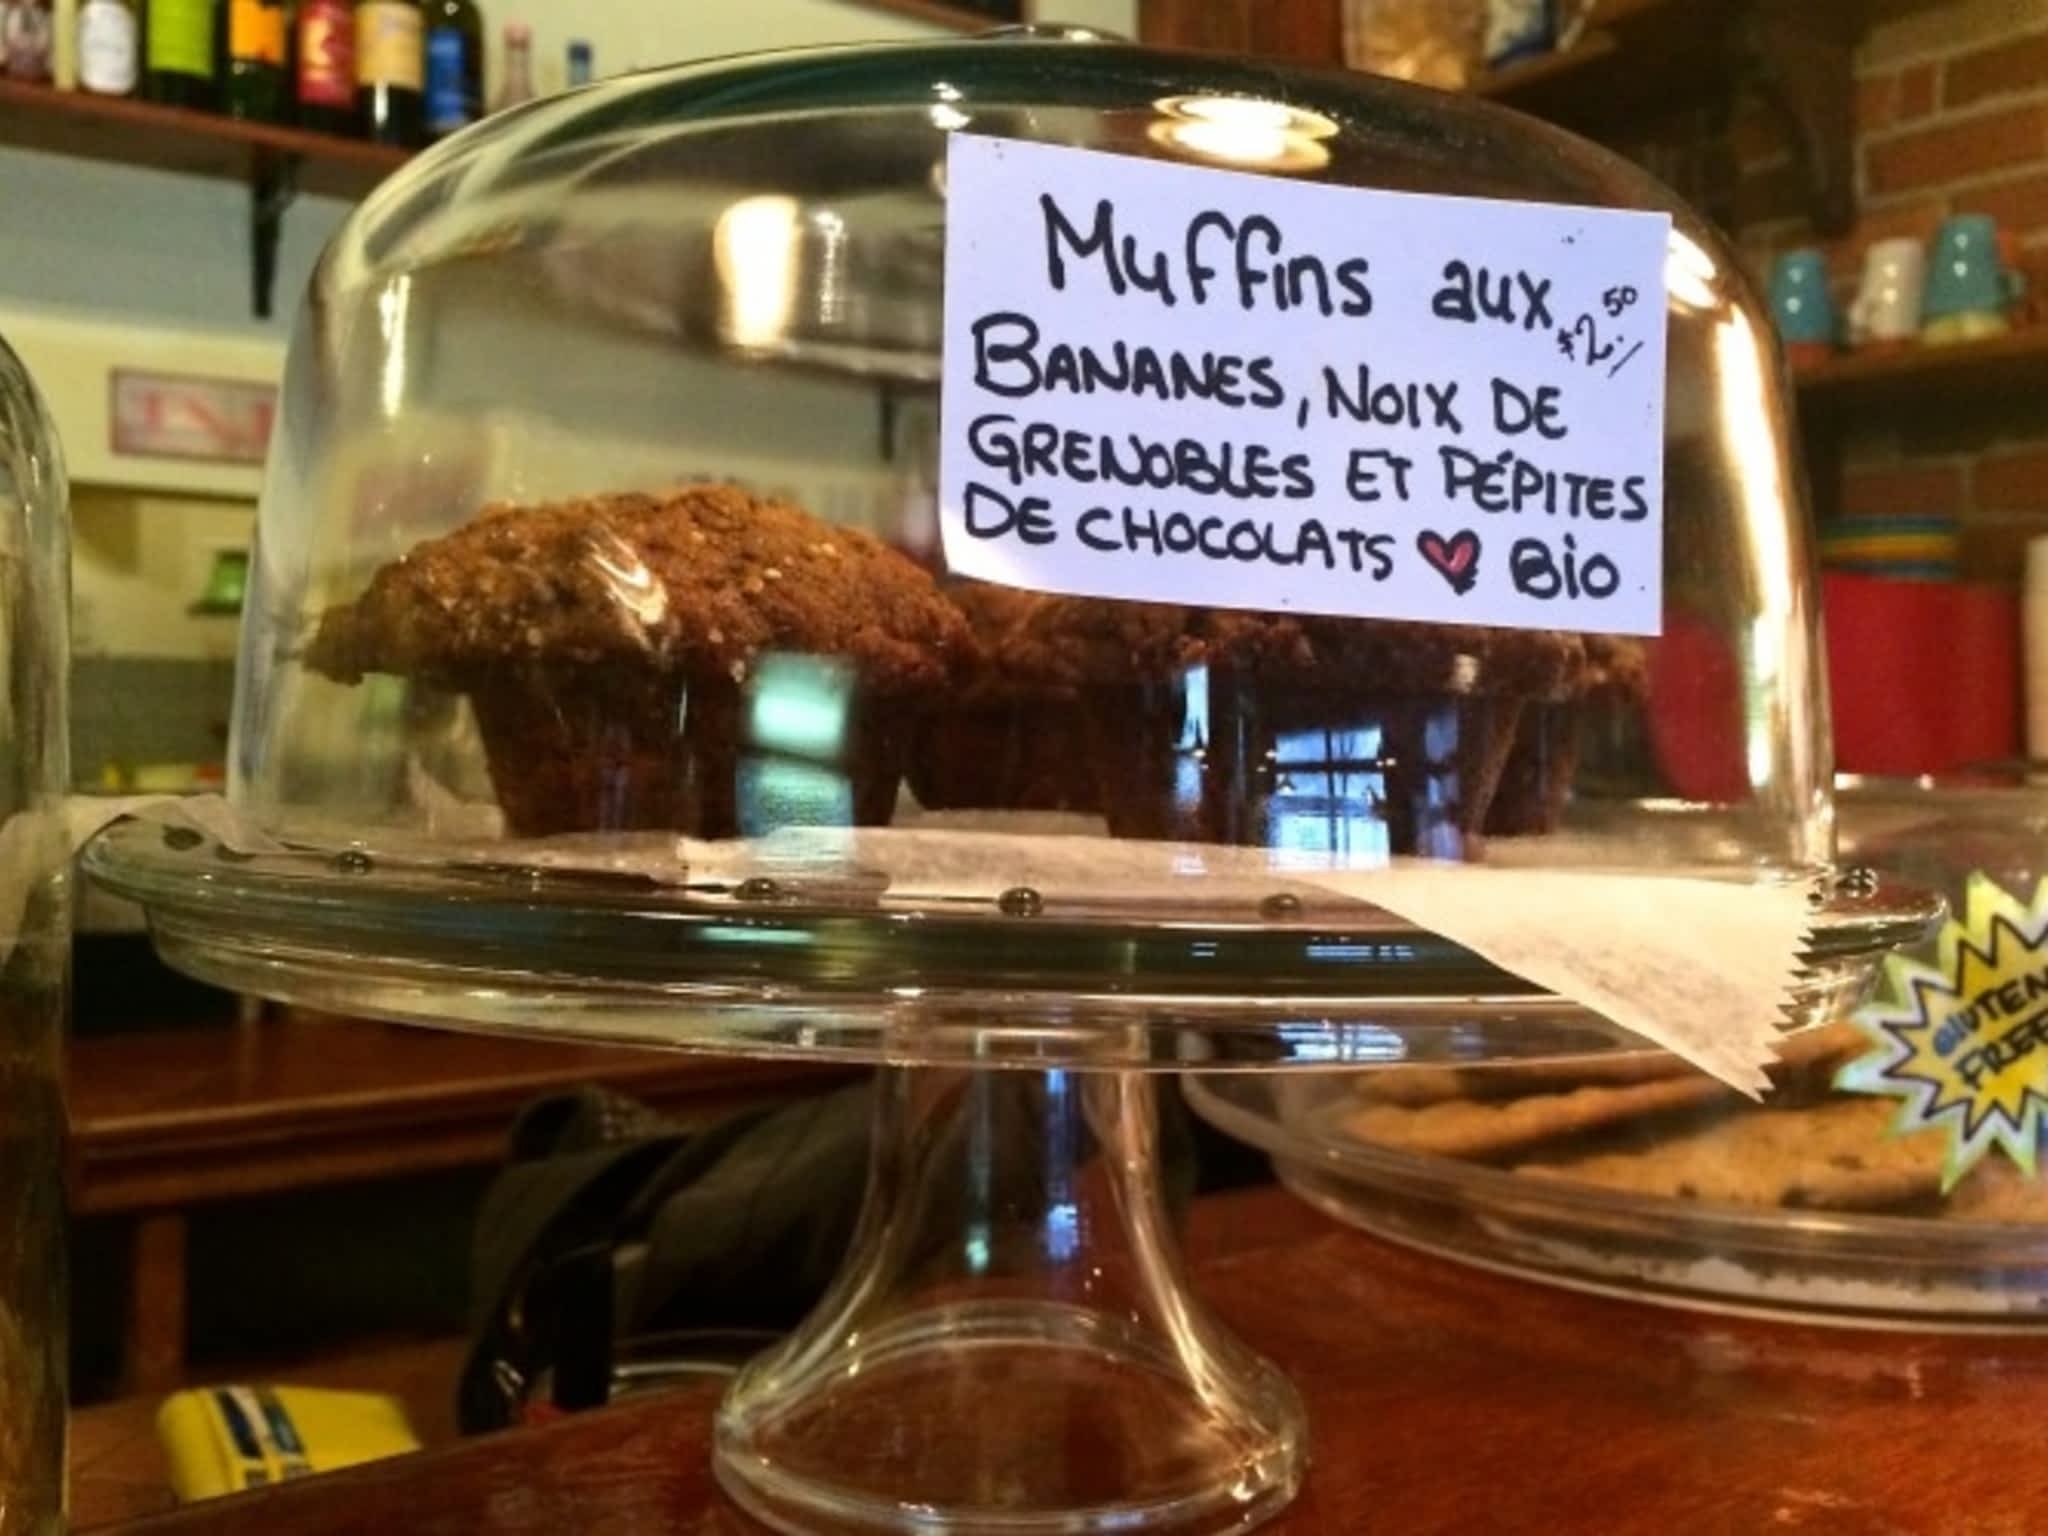 Muffins aux
$2.50
BANANES, NOIX DE
GRENOBLES ET PÉPITES
DE CHOCOLATS ♥ BiO
GLUTEN
FREE